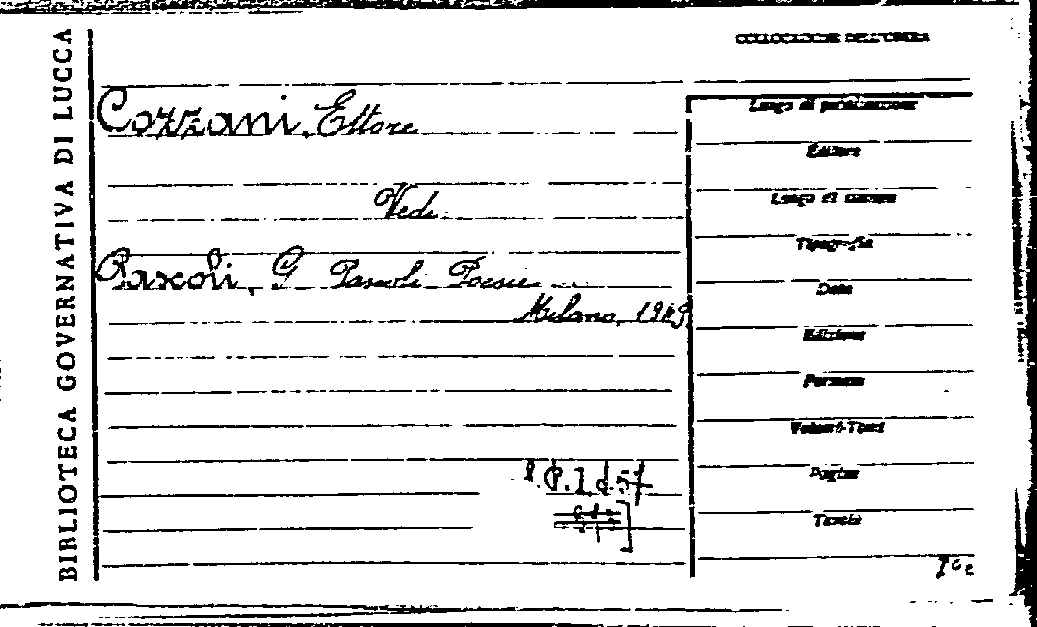 BIBLIOTECA GOVERNATIVA DI LUCCA
COLLOCAZIONE DELL'OPERA
Cozzani, Ettore
Vedi
Pascoli, G. Pascoli Poesie
Milano, 19
Luogo di pubblicazione
Editore
Luogo di stampa
Tipografia
Data
Edizione
Formato
Volumi-Tomi
Pagine
Tavole